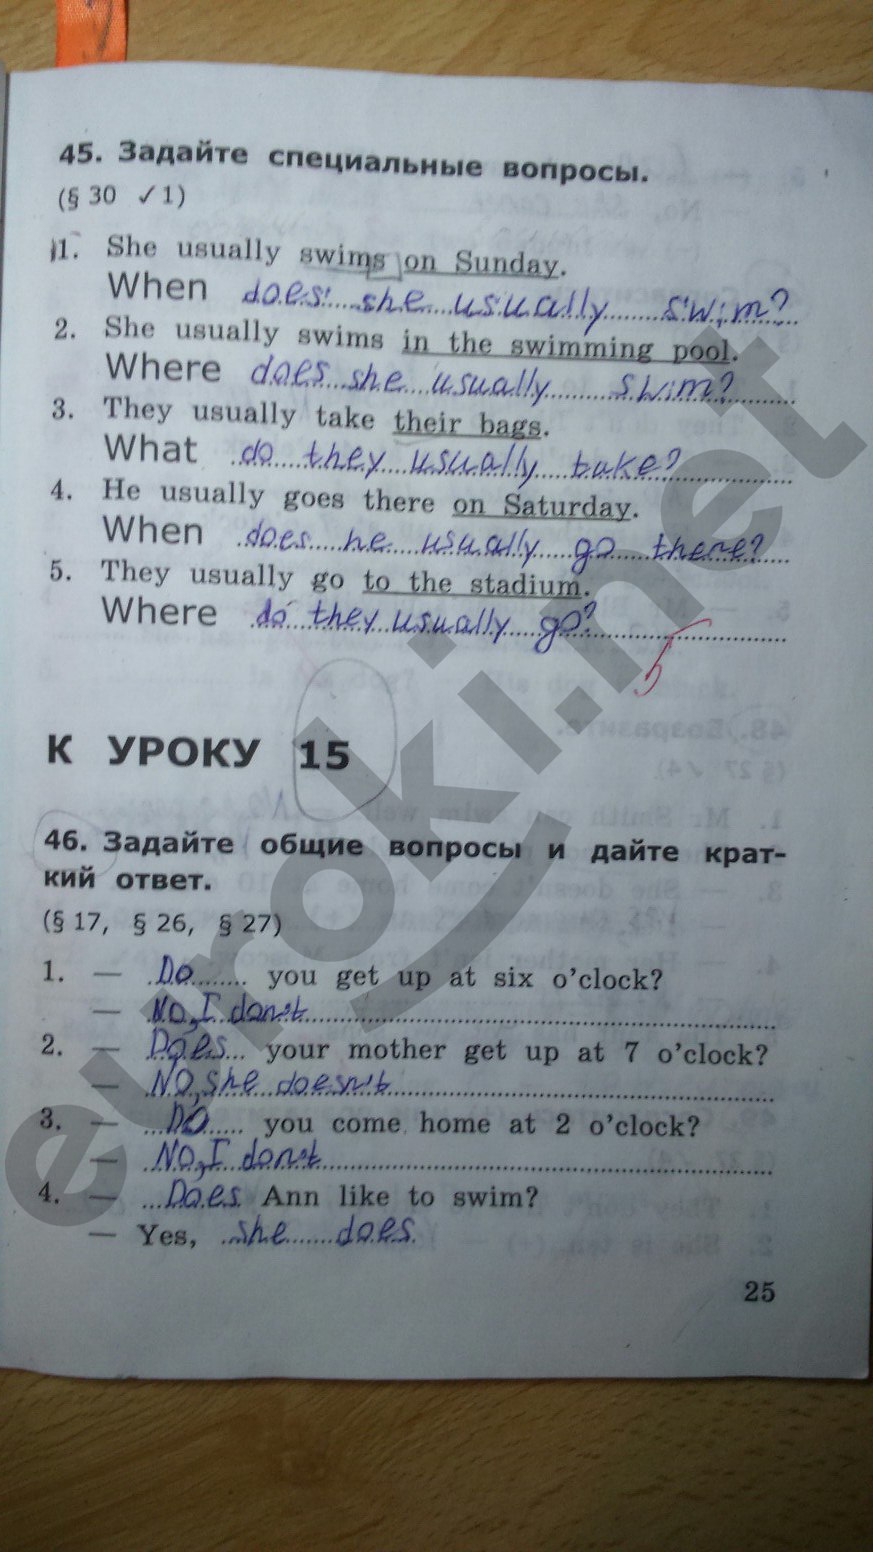 45. Задайте специальные вопросы.
(§ 30 ✓1)
1. She usually swims on Sunday.
When does she usually swim?
2. She usually swims in the swimming pool.
Where does she usually swim?
3. They usually take their bags.
What do they usually take?
4. He usually goes there on Saturday.
When does he usually go there?
5. They usually go to the stadium.
Where do they usually go?
5
К УРОКУ 15
46. Задайте общие вопросы и дайте крат-
кий ответ.
(§ 17, § 26, § 27)
1. — Do you get up at six o'clock?
— No, I don't
2. — Does your mother get up at 7 o'clock?
— No, she doesn't
3. — Do you come home at 2 o'clock?
— No, I don't
4. — Does Ann like to swim?
— Yes, she does.
25
euroki.net